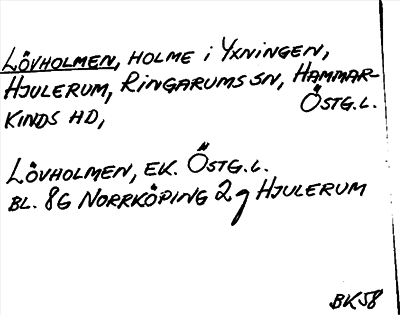 LÖVHOLMEN, HOLME i YXNINGEN,
HJULERUM, RINGARUMS SN, HAMMAR-
KINDS HD, ÖSTG.L.
LÖVHOLMEN, EK. ÖSTG.L.
BL. 8G NORRKÖPING 2g HJULERUM
BK58